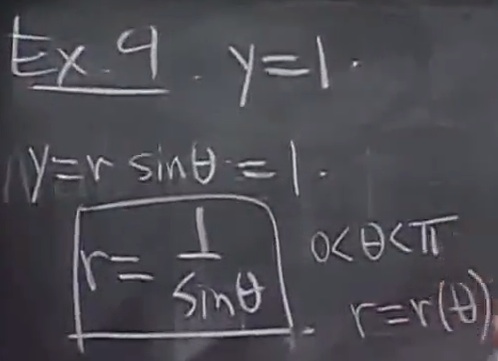 Ex. 9. y=1.
y=r sinθ = 1.
r= 1/sinθ 0<θ<π
r=r(θ)